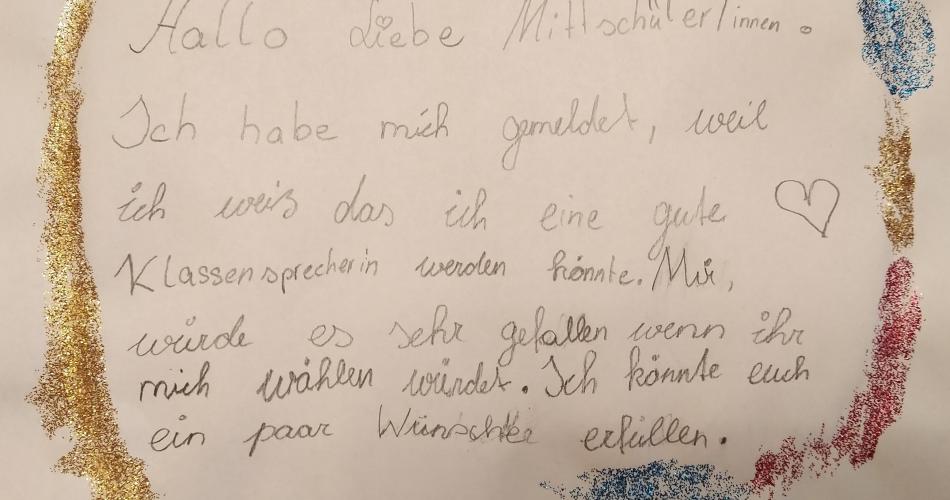 Hallo Liebe Mittschüler/innen.
Ich habe mich gemeldet, weil
ich weiß das ich eine gute
Klassensprecherin werden könnte. Mir,
würde es sehr gefallen wenn ihr
mich wählen würdet. Ich könnte euch
ein paar Wünsche erfüllen.